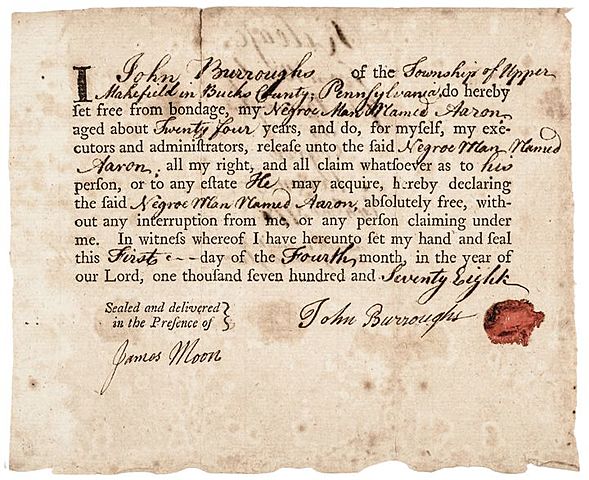 I John Burroughs of the Township of Upper
Makefield in Bucks County, Pennsylvania, do hereby
ſet free from bondage, my Negroe Man Named Aaron
aged about Twenty four years, and do, for myſelf, my exe-
cutors and adminiſtrators, releaſe unto the ſaid Negroe Man Named
Aaron, all my right, and all claim whatſoever as to his
perſon, or to any eſtate He may acquire, hereby declaring
the ſaid Negroe Man Named Aaron, abſolutely free, with-
out any interruption from me, or any perſon claiming under
me. In witneſs whereof I have hereunto ſet my hand and ſeal
this First day of the Fourth month, in the year of
our Lord, one thouſand ſeven hundred and Seventy Eight
Sealed and delivered
in the Preſence of }
John Burroughs
James Moon